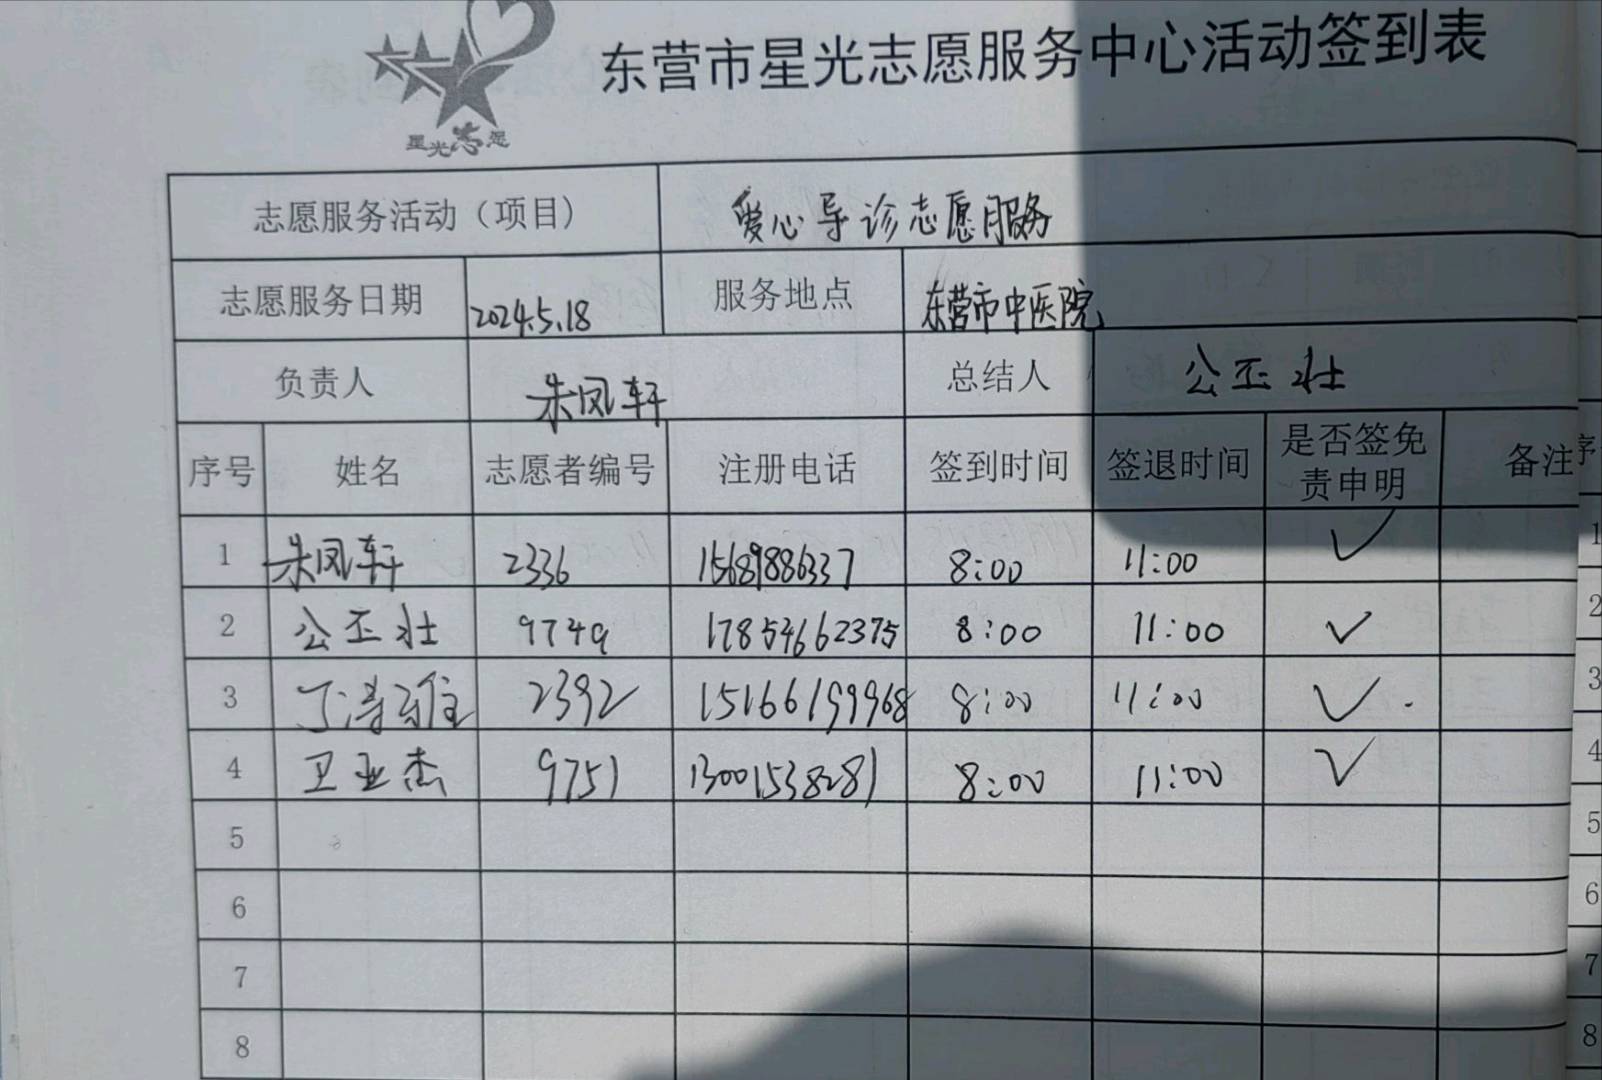 东营市星光志愿服务中心活动签到表
星光志愿
志愿服务活动（项目） 爱心导诊志愿服务
志愿服务日期 2024.5.18 服务地点 东营市中医院
负责人 朱凤轩 总结人 公丕壮
序号 姓名 志愿者编号 注册电话 签到时间 签退时间 是否签免责申明 备注
1 朱凤轩 2336 15689886337 8:00 11:00 ✓
2 公丕壮 9749 17854662375 8:00 11:00 ✓
3 丁 2392 15166199968 8:00 11:00 ✓
4 卫亚杰 9751 13001538281 8:00 11:00 ✓
5
6
7
8
序
1
2
3
4
5
6
7
8